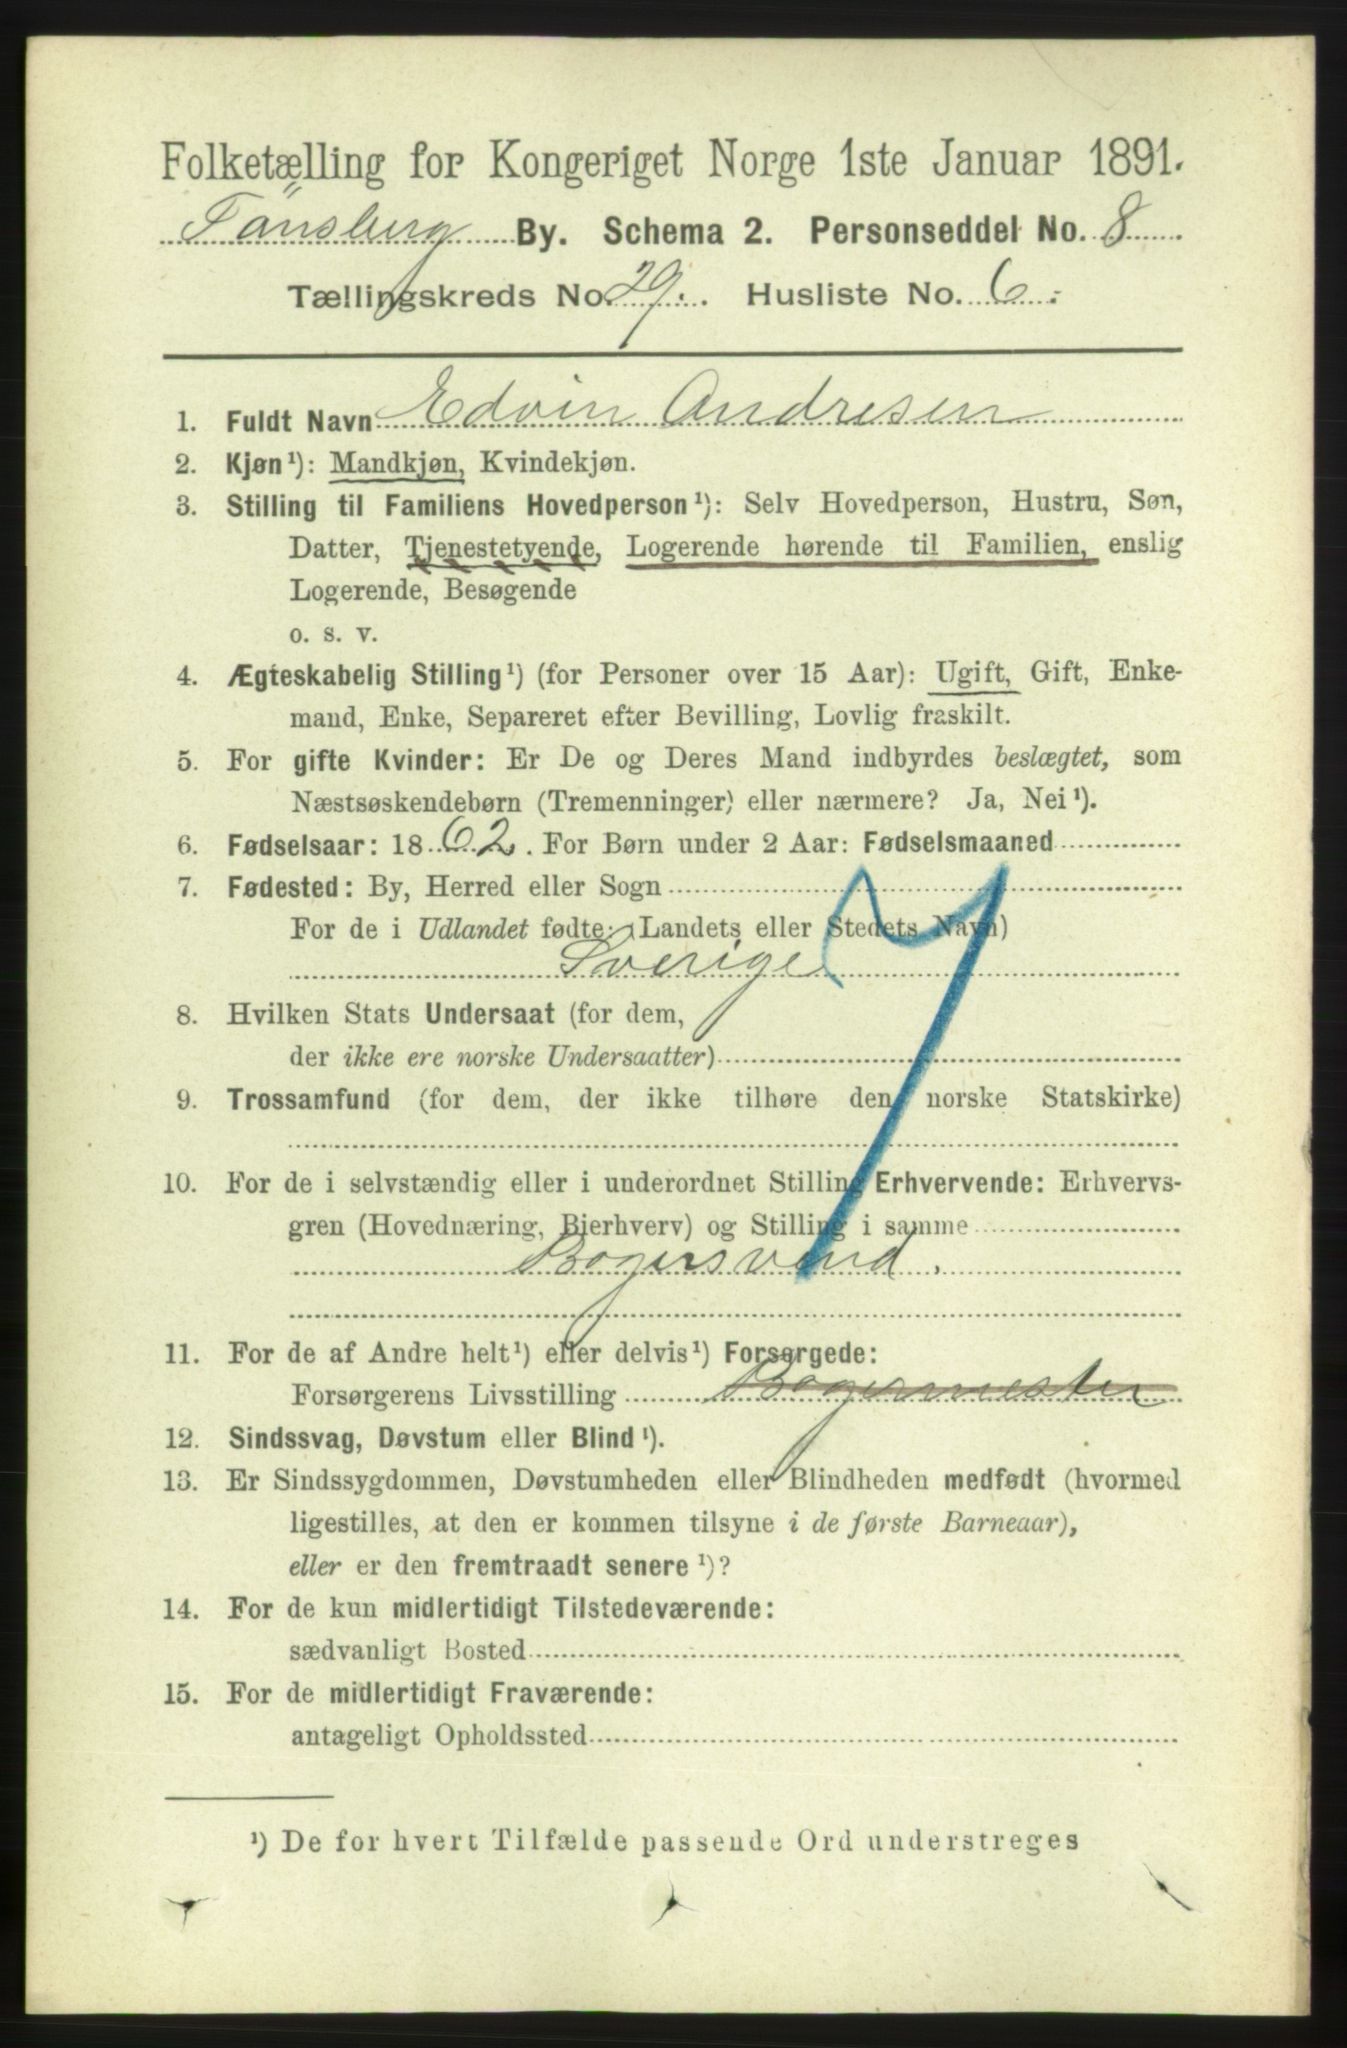 Folketælling for Kongeriget Norge 1ste Januar 1891.
Tönsberg By. Schema 2. Personseddel No. 8
Tællingskreds No. 29. Husliste No. 6.
1. Fuldt Navn Edvin Andresen
2. Kjøn¹): Mandkjøn, Kvindekjøn.
3. Stilling til Familiens Hovedperson¹): Selv Hovedperson, Hustru, Søn,
Datter, Tjenestetyende, Logerende hørende til Familien, enslig
Logerende, Besøgende
o. s. v.
4. Ægteskabelig Stilling¹) (for Personer over 15 Aar): Ugift, Gift, Enke-
mand, Enke, Separeret efter Bevilling, Lovlig fraskilt.
5. For gifte Kvinder: Er De og Deres Mand indbyrdes beslægtet, som
Næstsøskendebørn (Tremenninger) eller nærmere? Ja, Nei¹).
6. Fødselsaar: 1862. For Børn under 2 Aar: Fødselsmaaned
7. Fødested: By, Herred eller Sogn
For de i Udlandet fødte: (Landets eller Stedets Navn)
Sverige
8. Hvilken Stats Undersaat (for dem,
der ikke ere norske Undersaatter)
9. Trossamfund (for dem, der ikke tilhøre den norske Statskirke)
10. For de i selvstændig eller i underordnet Stilling Erhvervende: Erhvervs-
gren (Hovednæring, Bierhverv) og Stilling i samme
Bagersvend.
11. For de af Andre helt¹) eller delvis¹) Forsørgede:
Forsørgerens Livsstilling Bagermester
12. Sindssvag, Døvstum eller Blind¹).
13. Er Sindssygdommen, Døvstumheden eller Blindheden medfødt (hvormed
ligestilles, at den er kommen tilsyne i de første Barneaar),
eller er den fremtraadt senere¹)?
14. For de kun midlertidigt Tilstedeværende:
sædvanligt Bosted
15. For de midlertidigt Fraværende:
antageligt Opholdssted
¹) De for hvert Tilfælde passende Ord understreges